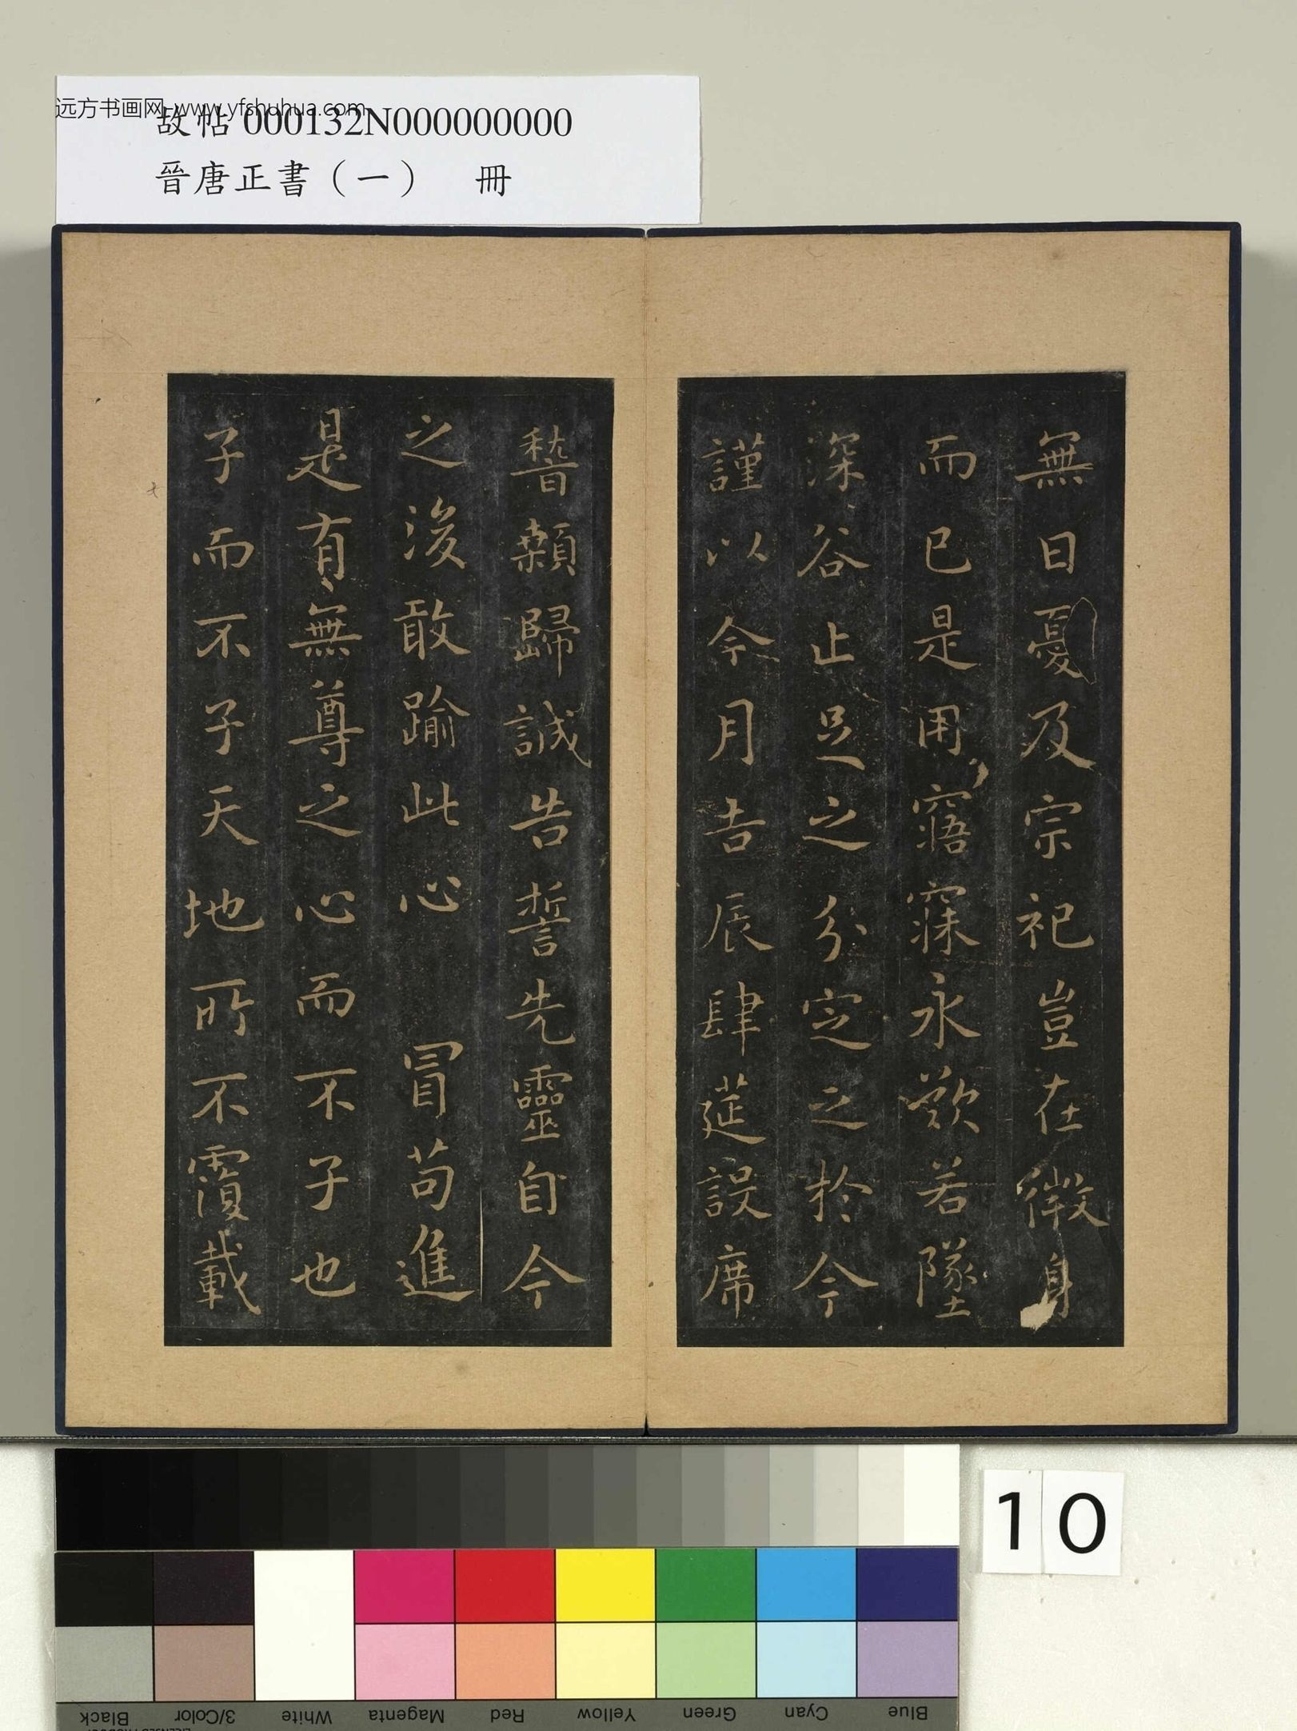 远方书画网 www.yfshuhua.com
故帖 000132N000000000
晉唐正書（一） 冊
無日憂及宗祀豈在微身
而已是用寤寐永歎若墜
深谷止足之分定之於今
謹以今月吉辰肆莚設席
稽顙歸誠告誓先靈自今
之後敢踰此心 冒苟進
是有無尊之心而不子也
子而不子天地所不覆載
10
Black
3/Color
White
Magenta
Red
Yellow
Green
Cyan
Blue